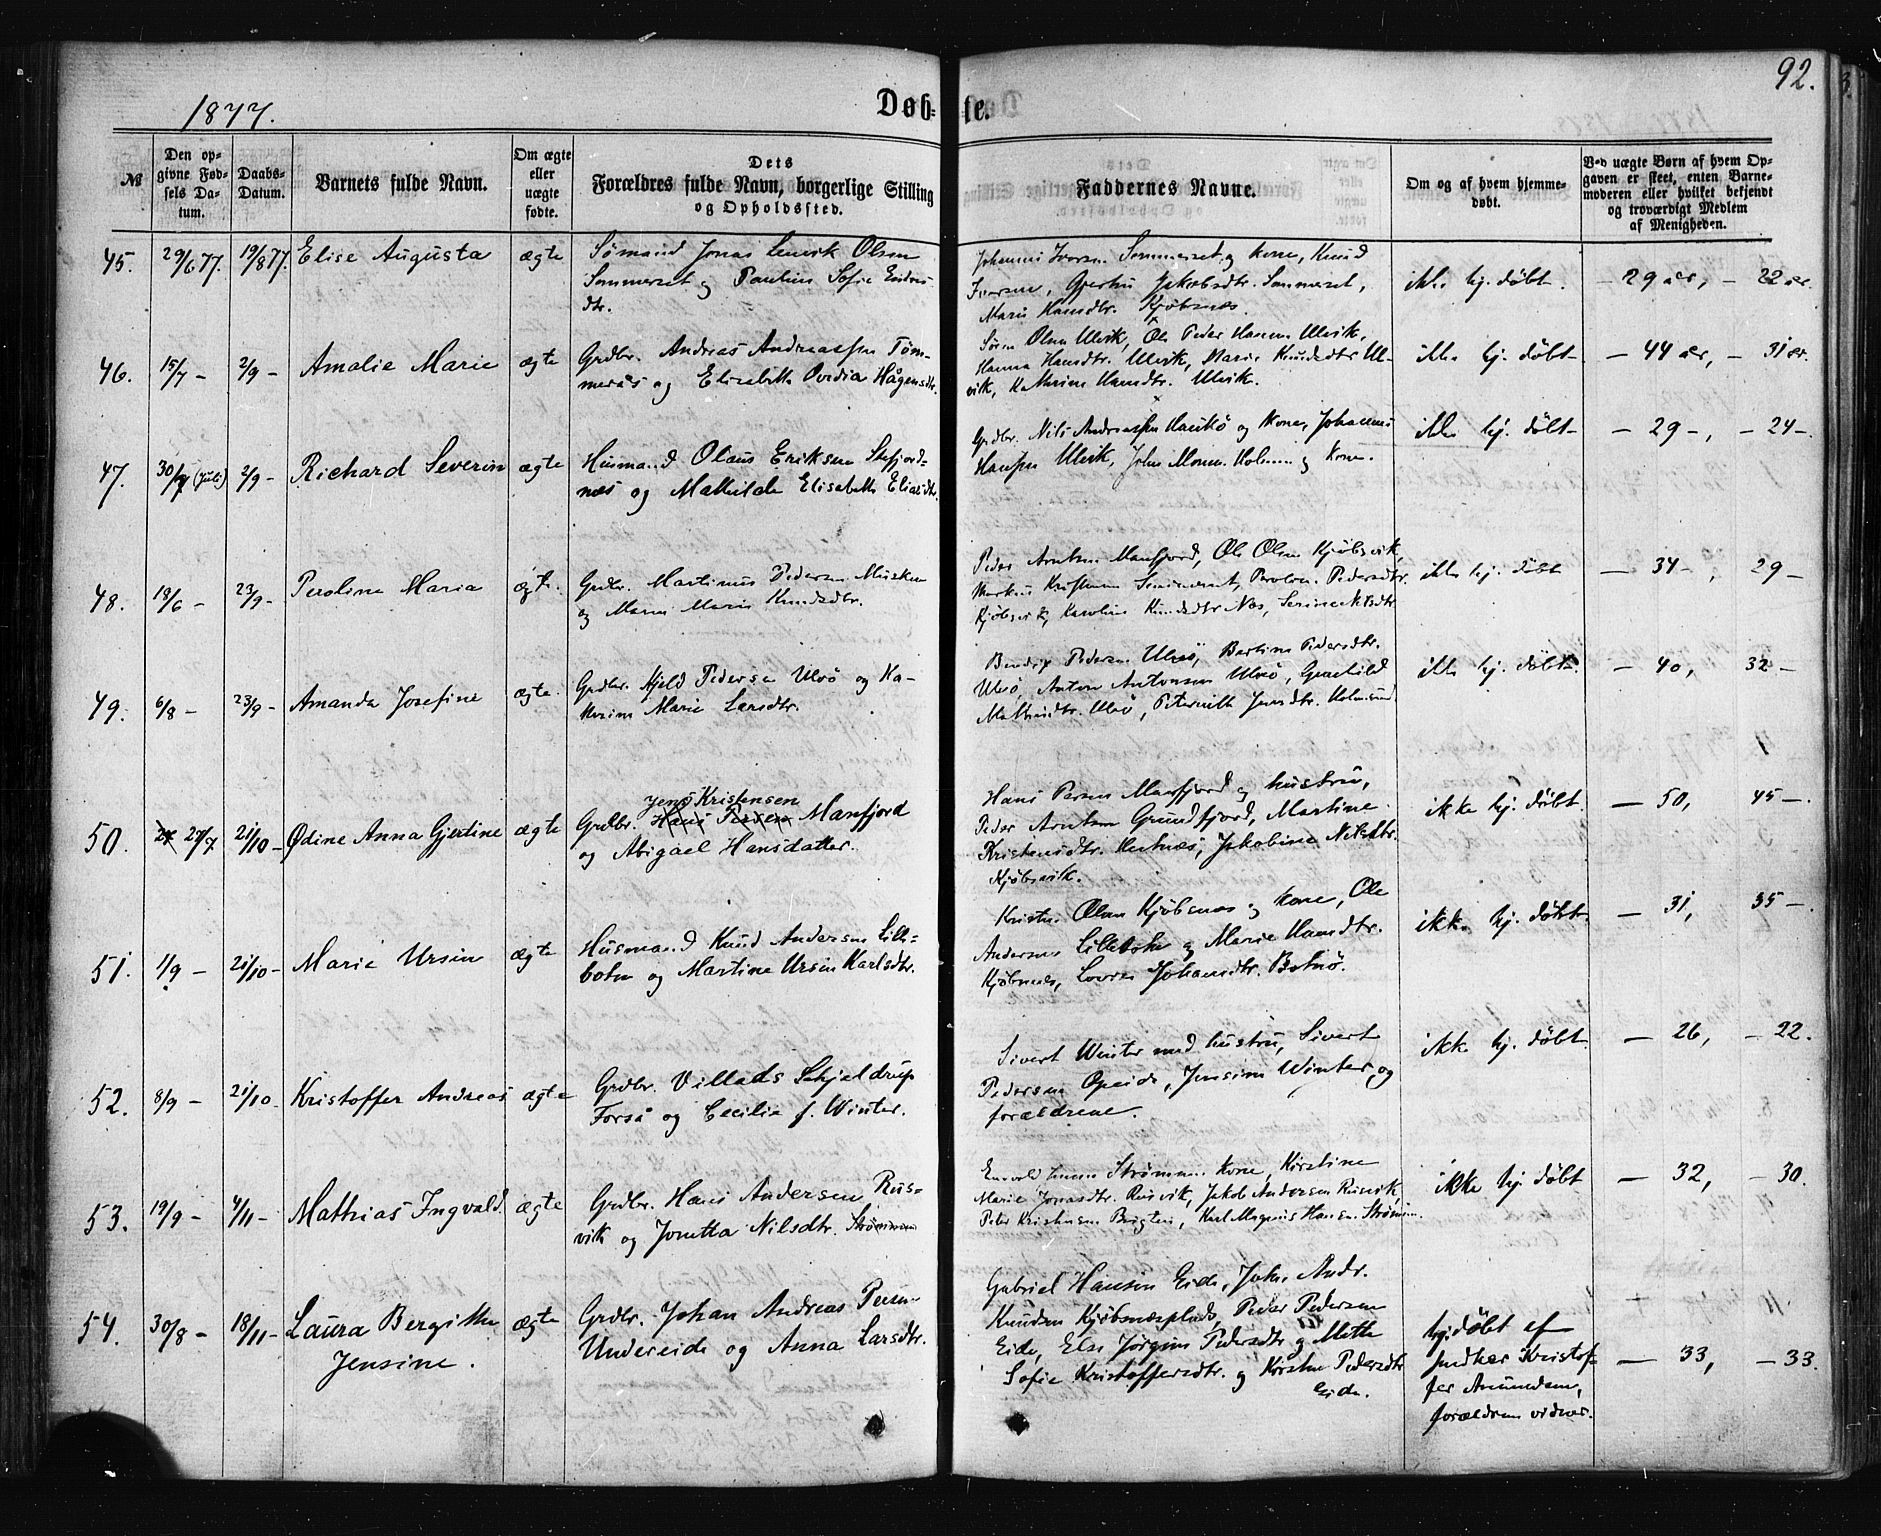 1877.
Døb-
te.
92.
№
Den op-
givne Fød-
sels Da-
tum.
Daabs-
Datum.
Barnets fulde Navn.
Om ægte
eller
uægte
fødte.
Dets
Forældres fulde Navn, borgerlige Stilling
og Opholdssted.
Faddernes Navne.
Om og af hvem hjemme-
døbt.
Ved uægte Børn af hvem Op-
gaven er skeet, enten Barne-
moderen eller hvilket bekjendt
og troværdigt Medlem
af Menigheden.
45. 29/6 77. 19/8 77. Elise Augusta ægte
Sømand Jonas Lenvik Olsen
Sommerset og Pauline Sofie
dtr.
Johannes Iversen Sommerset og kone, Knud
Iversen, Gjertru Jakobsdtr. Sommerset,
Maria Hansdtr. Kjøbsnæs.
ikke hj. døbt. – 29 aar, – 22 aar.
46. 15/7 – 2/9 – Amalie Marie ægte
Grdbr. Andreas Andreassen Tøm-
meraas og Elisabeth Ovedia Hågensdtr.
Søren Olsen Ulvik, Ole Peder Hansen Ulvik,
Hanna Hansdtr. Ulvik, Maria Knudsdtr. Ul-
vik, Kathrine Hansdtr. Ulvik.
ikke hj. døbt – 44 aar, – 31 aar.
47. 30/7 (Juli) 2/9 – Richard Severin ægte
Husmand Olaus Eriksen
næs og Mathilde Elisabeth Eliasdtr.
Grdbr. Nils Andreassen Haukø og Kone, Johannes
Hansen Ulvik, John Monsen Holmen og Kone.
ikke hj. døbt – 29 –, – 24 –.
48. 18/6 – 23/9 – Peroline Maria ægte.
Grdbr. Martinus Pedersen Musken
og Maren Maria Knudsdtr.
Peder Arntsen Mansfjord, Ole Olsen Kjøbsvik,
Markus Kristensen Sommerset, Peroline Pedersdtr.
Kjøbsvik, Karoline Knudsdtr. Næs, Serine Nilsdtr.
ikke hj. døbt – 34 –, 29 –
49. 6/8 – 23/9 – Amanda Josefine ægte.
Grdbr. Kjeld Pedersen Ulvø og Ka-
thrine Marie Larsdtr.
Bendix Pedersen Ulvø, Bertine Pedersdtr.
Ulvø, Anton Antonsen Ulvø, Gunhild
Mathisdtr. Ulvø, Peternille Jensdtr. Holmsund
ikke hj. døbt – 40, 32 –
50. 27/7 21/10 – Ødine Anna Gjertine ægte
Jens Kristensen
Grdbr. Hans Persen Mansfjord
og Abigael Hansdatter.
Hans Persen Mansfjord og hustru,
Peder Arntsen Grundfjord, Martine
Kristensdtr. Hestnæs, Jakobine Nilsdtr.
Kjøbsvik.
ikke hj. døbt. – 50, 45 –.
51. 1/9 – 21/10 – Marie Ursin ægte
Husmand Knud Andersen Lille-
botn og Martine Ursin Karlsdtr.
Kristen Olsen Kjøbsnæs og kone, Ole
Andersen Lillebotn og Marie Hansdtr.
Kjøbsnæs, Lovise Johansdtr. Botnø.
ikke hj. døbt. – 31, 35 –.
52. 8/9 – 21/10. Kristoffer Andreas ægte
Grdbr. Villads Schjeldrup
Forså og Cecilia f. Winter.
Sivert Winter med hustru, Sivert
Pedersen Opeide, Jensine Winter, og
forældrene.
ikke hj. døbt. – 26, – 22.
53. 19/9 – 4/11 – Mathias Ingvald. ægte
Grdbr. Hans Andersen Rus-
vik og Jonetta Nilsdtr. Strømmen
Enevold Jensen Strømmen, Kone, Kirstine
Marie Jonasdtr. Rusvik, Jakob Andersen Rusvik,
Peter Kristensen Brigten, Karl Magnus Hansen Strømmen.
ikke hj. døbt – 32, – 30.
54. 30/8 – 18/11 – Laura Bergithe ægte
Jensine.
Grdbr. Johan Andreas Persen
Undereide og Anna Larsdtr.
Gabriel Hansen Eide, Johan Andr.
Knudsen Kjøbsnæsplads, Peder Pedersen
Eide, Else Jørgine Pedersdtr. og Mette
Sofie Kristoffersdtr. og Kirsten Pedersdtr.
Eide.
hj. døbt af
Indker Kristof-
fer Amundsen,
forældrene vidner.
– 33, – 33.